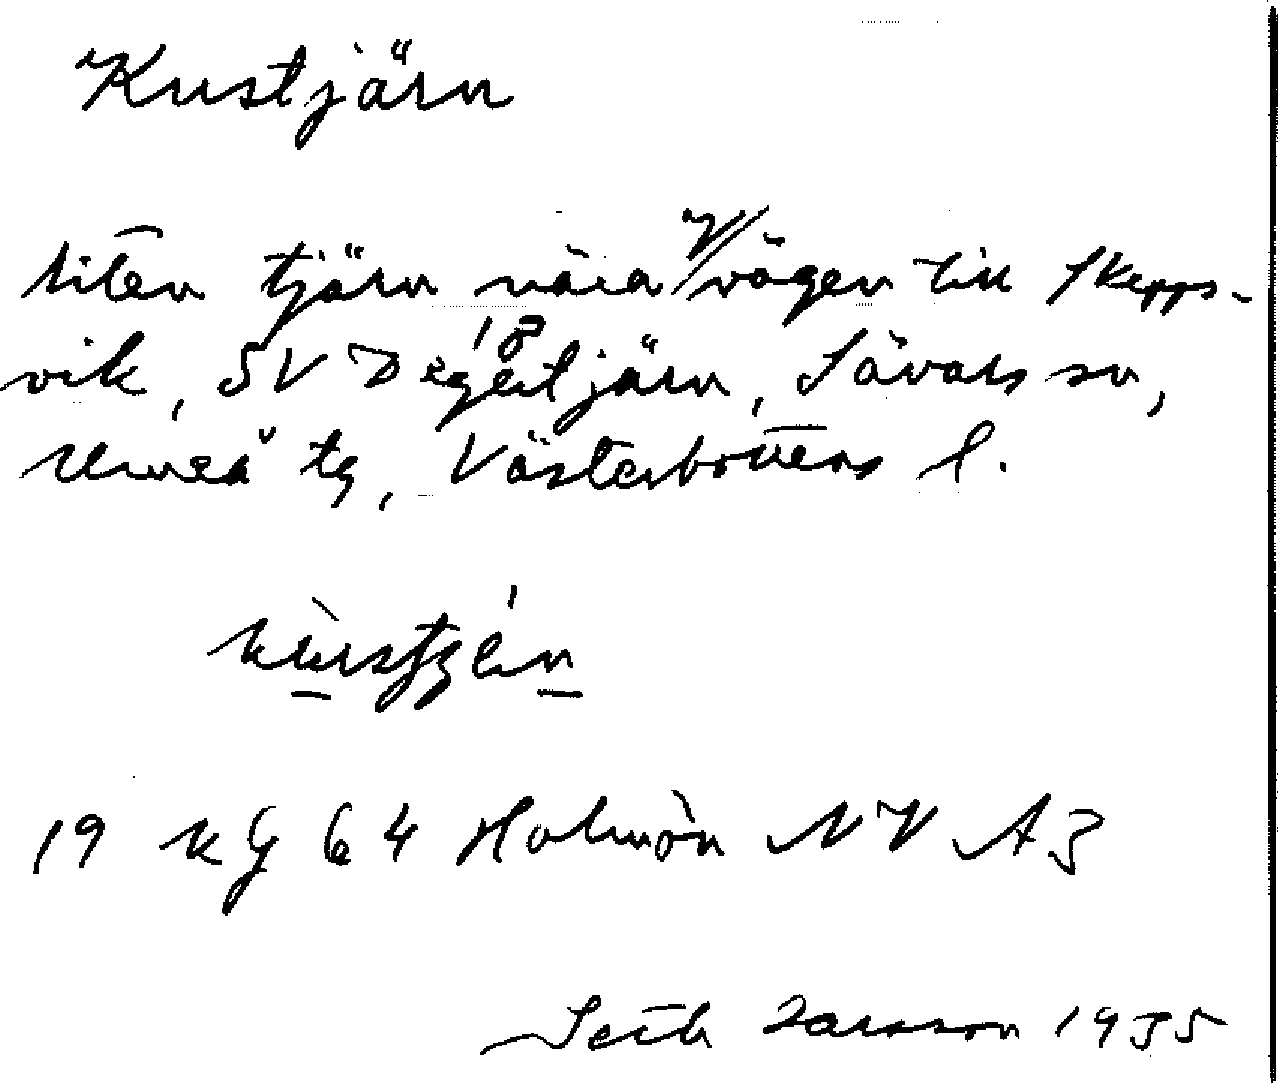 Kustjärn
liten tjärn nära V/vägen till Skepps-
vik, SV Degertjärn, Sävars sn,
Umeå tg, Västerbottens l.
19 Kg 64 Holmön NV A3
Seth Larsson 1935